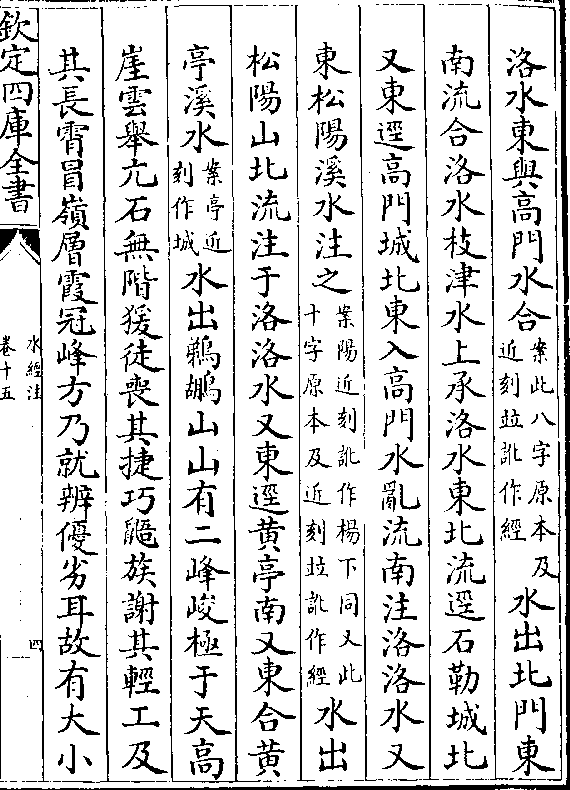 洛水東與高門水合案此八字原本及近刻竝訛作經水出北門東
南流合洛水枝津水上承洛水東北流逕石勒城北
又東逕高門城北東入高門水亂流南注洛洛水又
東松陽溪水注之案陽近刻訛作楊下同又此十字原本及近刻竝訛作經水出
松陽山北流注于洛洛水又東逕黄亭南又東合黄
亭溪水案亭近刻作城水出鵜鶘山山有二峰峻極于天高
崖雲舉亢石無階猨徒喪其捷巧鼯族謝其輕工及
其長霄冒嶺層霞冠峰方乃就辨優劣耳故有大小
欽定四庫全書
水經注
卷十五
四